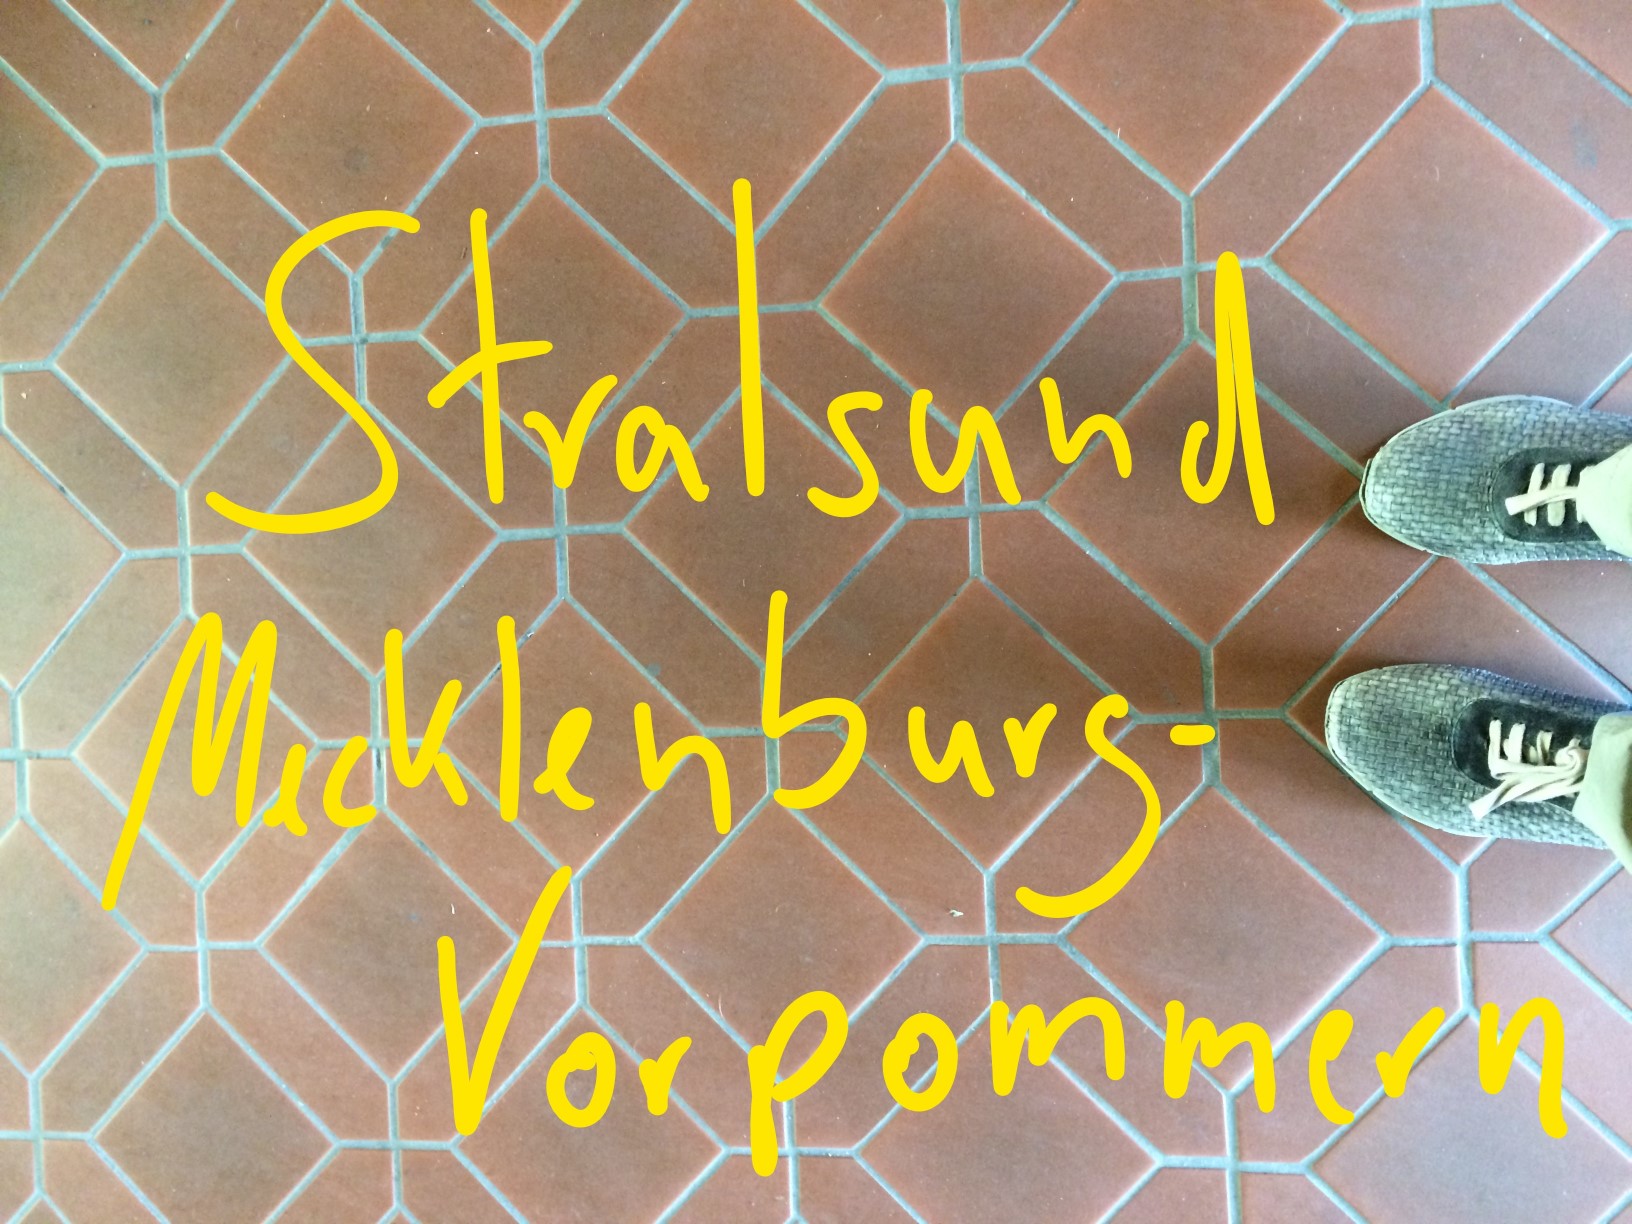 Stralsund
Mecklenburg-
Vorpommern